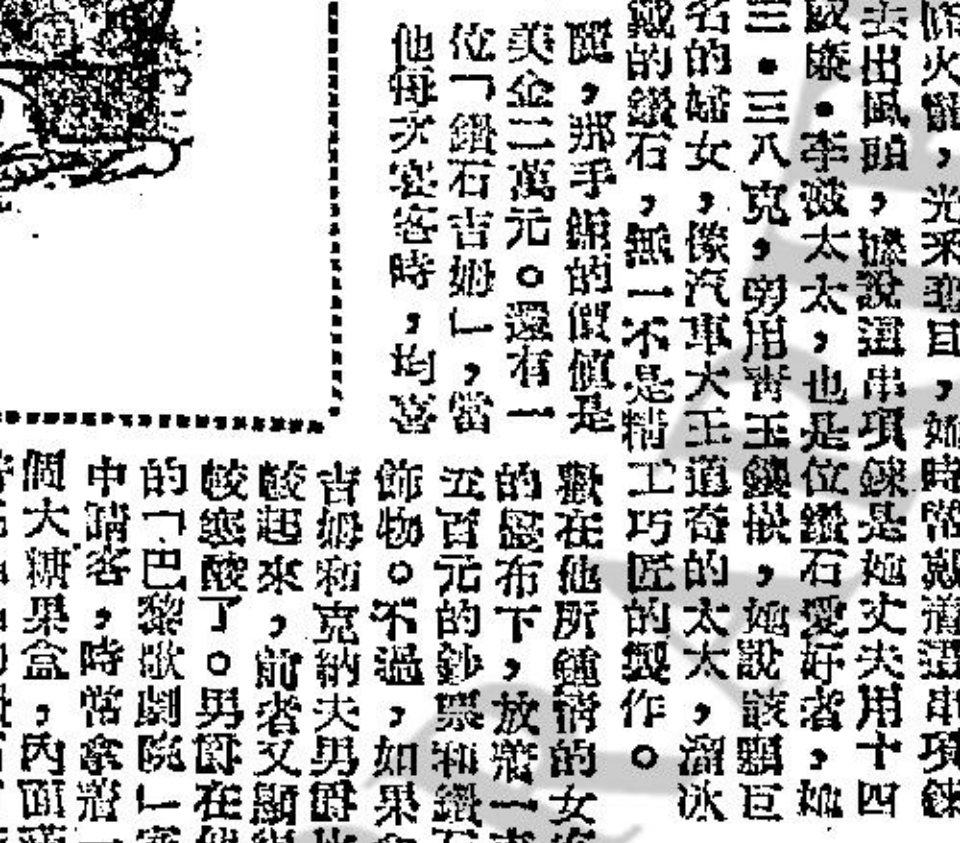 火龍,光采奪目,她時常戴着這串項鍊
去出風頭,據說這串項鍊是她丈夫用十四
廉•李波太太,也是位鑽石愛好者,她
三•三八克,旁用青玉鑲嵌,她說該顆巨
名的婦女,像汽車大王道奇的太太,溜冰
戴的鑽石,無一不是精工巧匠的製作。
,那手鐲的價值是
美金二萬元。還有一
位「鑽石吉姆」,當
他每次宴客時,均喜
歡在他所鍾情的女
的壓布下,放着一
五百元的鈔票和鑽石
飾物。不過,如果
吉姆和克納夫男爵
較起來,前者又顯
較寒酸了。男爵在
的「巴黎歌劇院」
中請客,時常拿着一
個大糖果盒,內面